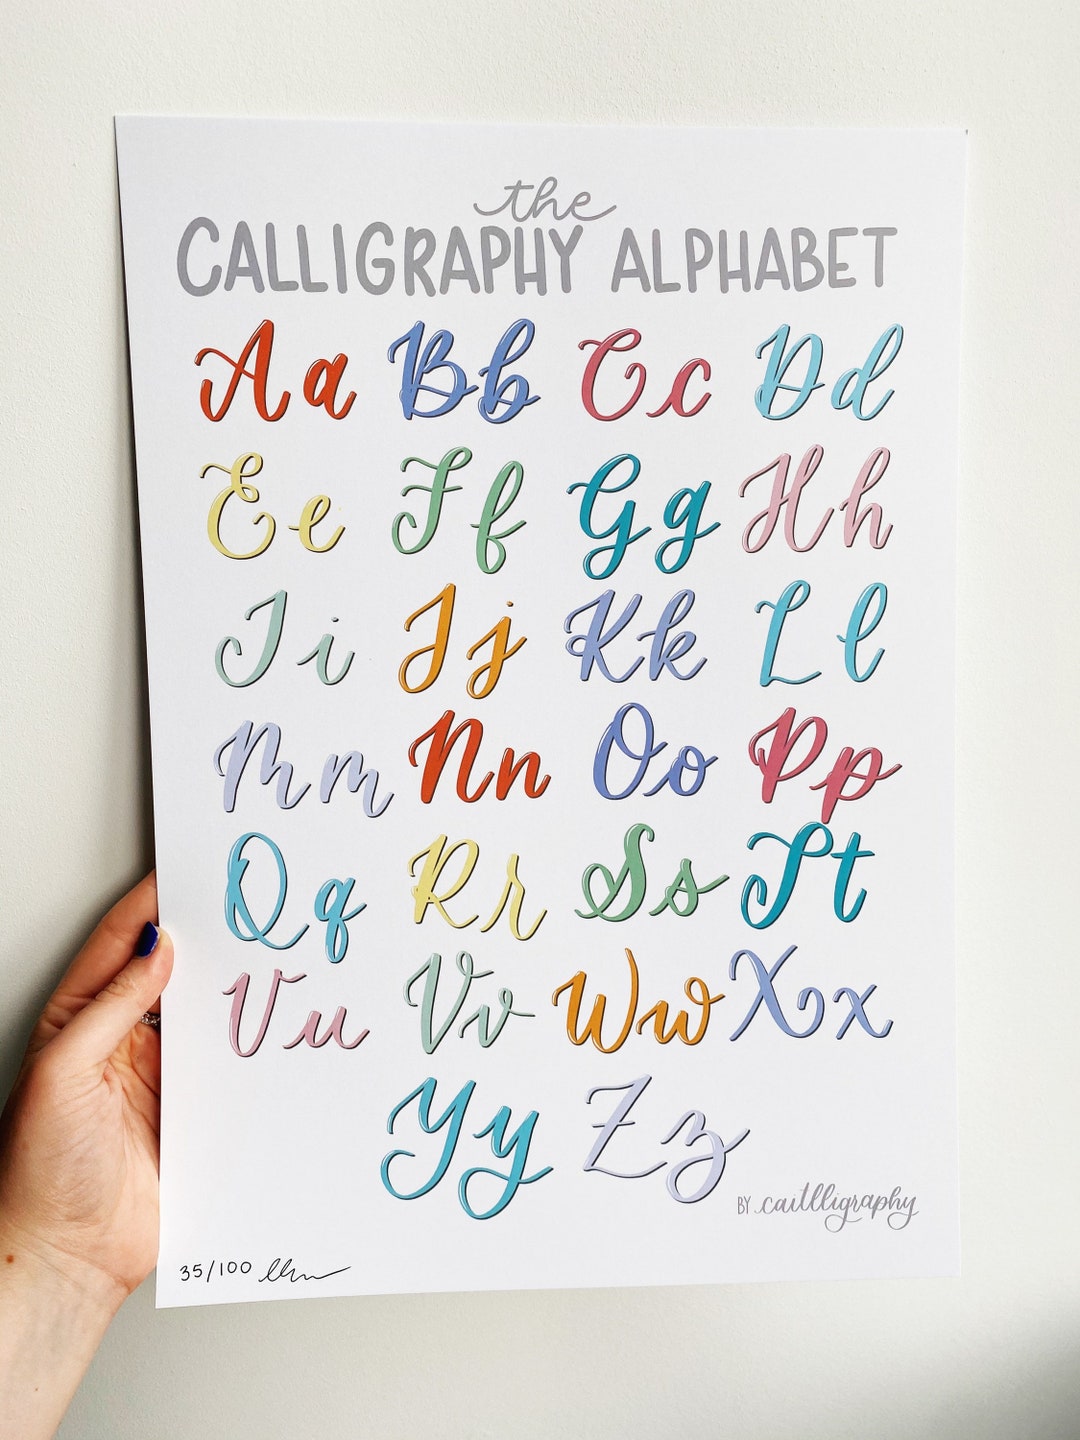 the
CALLIGRAPHY ALPHABET
Aa Bb Cc Dd
Ee Ff Gg Hh
Ii Jj Kk Ll
Mm Nn Oo Pp
Qq Rr Ss Tt
Uu Vv Ww Xx
Yy Zz
BY caitlligraphy
35/100